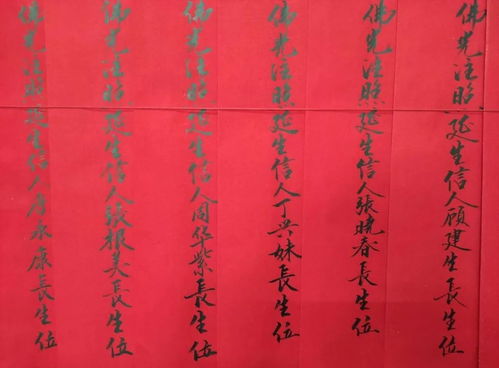 佛光注照延生信人顾建生長生位
佛光注照延生信人張晓春長生位
佛光注照延生信人丁兴妹長生位
佛光注照延生信人周华紫長生位
佛光注照延生信人張根美長生位
佛光注照延生信人唐永康長生位